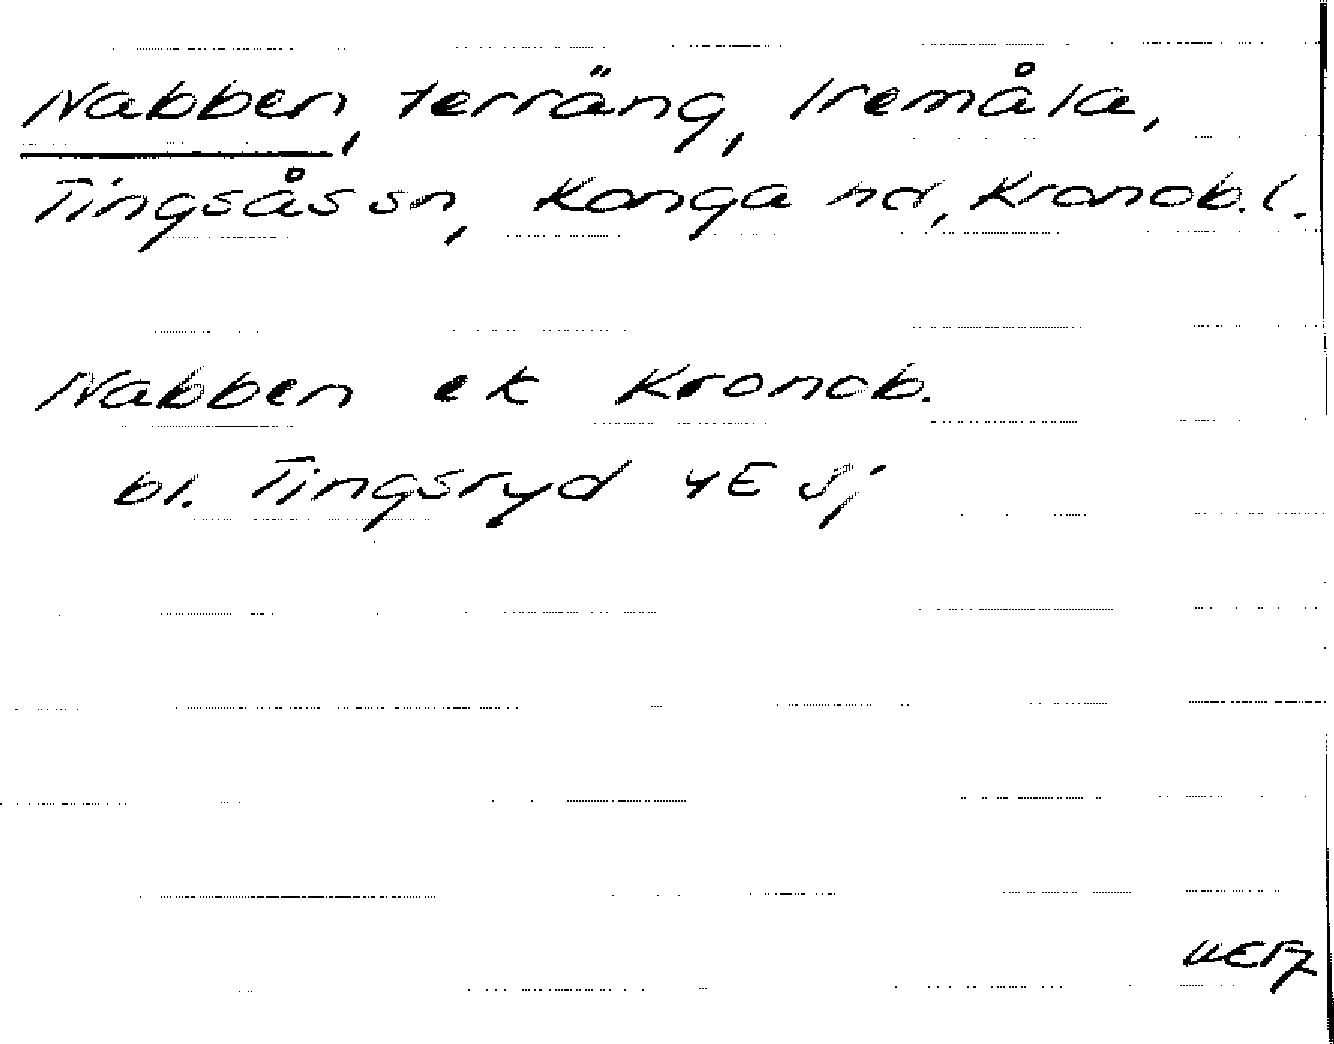 Nabben, terräng, Iremåla,
Tingsås sn, Konga hd, Kronob. l.
Nabben ek Kronob.
bl. Tingsryd 4E